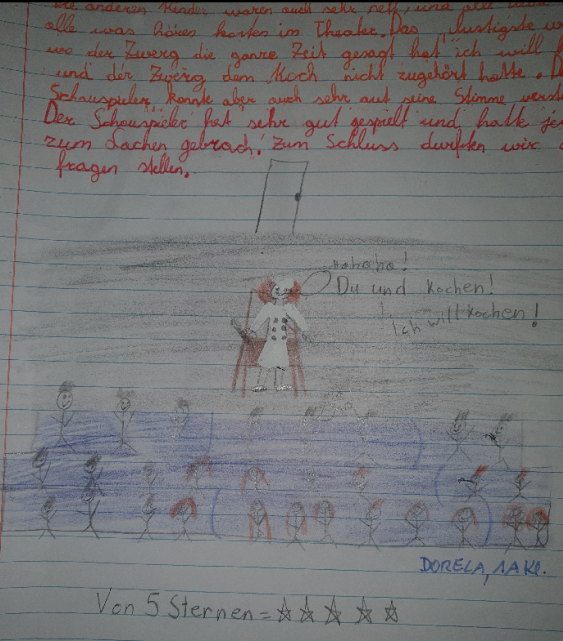 die anderen Kinder waren auch sehr nett, und alle
alle was hören konten im Theater. Das lustigste
wo der Zwerg die ganze Zeit gesagt hat ich will
und der Zwerg dem Koch nicht zugehört hatte.
Schauspieler konnte aber auch sehr gut seine Stimme
Der Schauspieler hat sehr gut gespielt und hatte
zum Lachen gebracht! Zum Schluss durften wir
fragen stellen.
hahaha!
Du und kochen!
Ich will kochen!
DORELA, 1AKL.
Von 5 Sternen = ☆☆☆☆☆